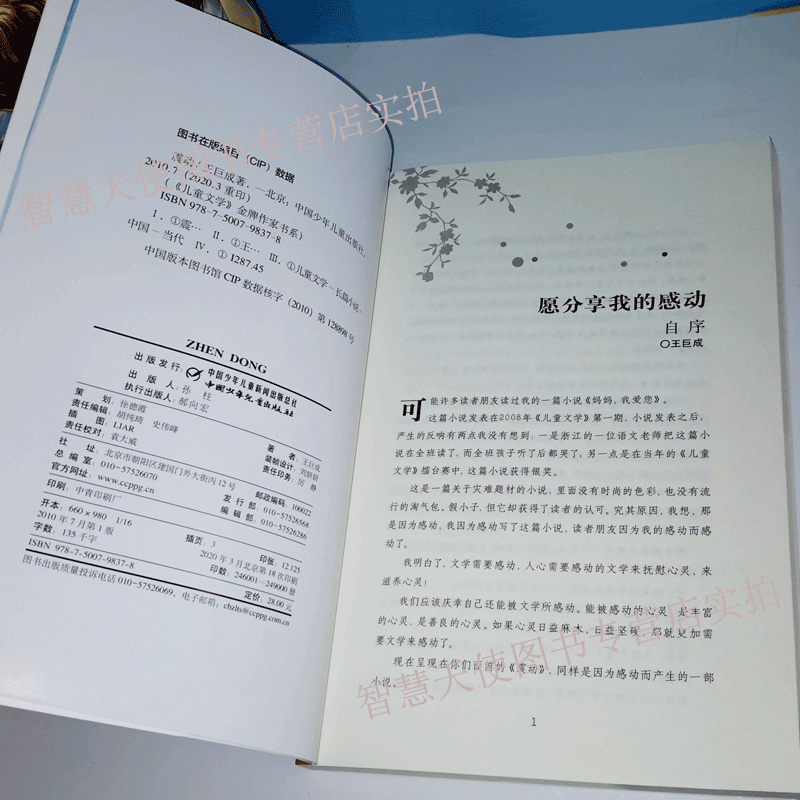 图书在版编目(CIP)数据
震动/王巨成著.—北京:中国少年儿童出版社,
2010.7(2020.3重印)
(《儿童文学》金牌作家书系)
ISBN 978-7-5007-9837-8
Ⅰ.①震… Ⅱ.①王… Ⅲ.①儿童文学－长篇小说－
中国－当代 Ⅳ.①I287.45
中国版本图书馆CIP数据核字(2010)第128898号
ZHEN DONG
出版发行: 中国少年儿童新闻出版总社
中国少年儿童出版社
出 版 人:孙 柱
执行出版人:郝向宏
策 划:徐德霞
责任编辑:胡纯琦 史伟峰
插 图:LIAR
责任校对:袁大威
著 者:王巨成
装帧设计:刘妍妍
责任印务:厉 静
社 址:北京市朝阳区建国门外大街丙12号
邮政编码:100022
总 编 室:010-57526070
发 行 部:010-57526568
官方网址:www.ccppg.cn
编 辑 部:010-57526286
印刷:中青印刷厂
开本:660×980 1/16
插页:3
印张:12.125
2010年7月第1版
2020年3月北京第18次印刷
字数:135千字
印数:246001—249000册
ISBN 978-7-5007-9837-8
定价:28.00元
图书出版质量投诉电话010-57526069,电子邮箱:cbzlts@ccppg.com.cn
愿分享我的感动
自序
○王巨成
可能许多读者朋友读过我的一篇小说《妈妈,我爱您》。
这篇小说发表在2008年《儿童文学》第一期,小说发表之后,
产生的反响有两点我没有想到:一是浙江的一位语文老师把这篇小
说在全班读了,而全班孩子听了后都哭了;另一点是在当年的《儿童
文学》擂台赛中,这篇小说获得银奖。
这是一篇关于灾难题材的小说,里面没有时尚的色彩,也没有流
行的淘气包、假小子,但它却获得了读者的认可。究其原因,我想,那
是因为感动,我因为感动写了这篇小说,读者朋友因为我的感动而感
动了。
我明白了,文学需要感动,人心需要感动的文学来抚慰心灵,来
滋养心灵!
我们应该庆幸自己还能被文学所感动。能被感动的心灵,是丰富
的心灵,是善良的心灵。如果心灵日益麻木,日益坚硬,那就更加需
要文学来感动了。
现在呈现在你们面前的《震动》,同样是因为感动而产生的一部
小说。
1
智慧天使图书专营店实拍
智慧天使图书专营店实拍